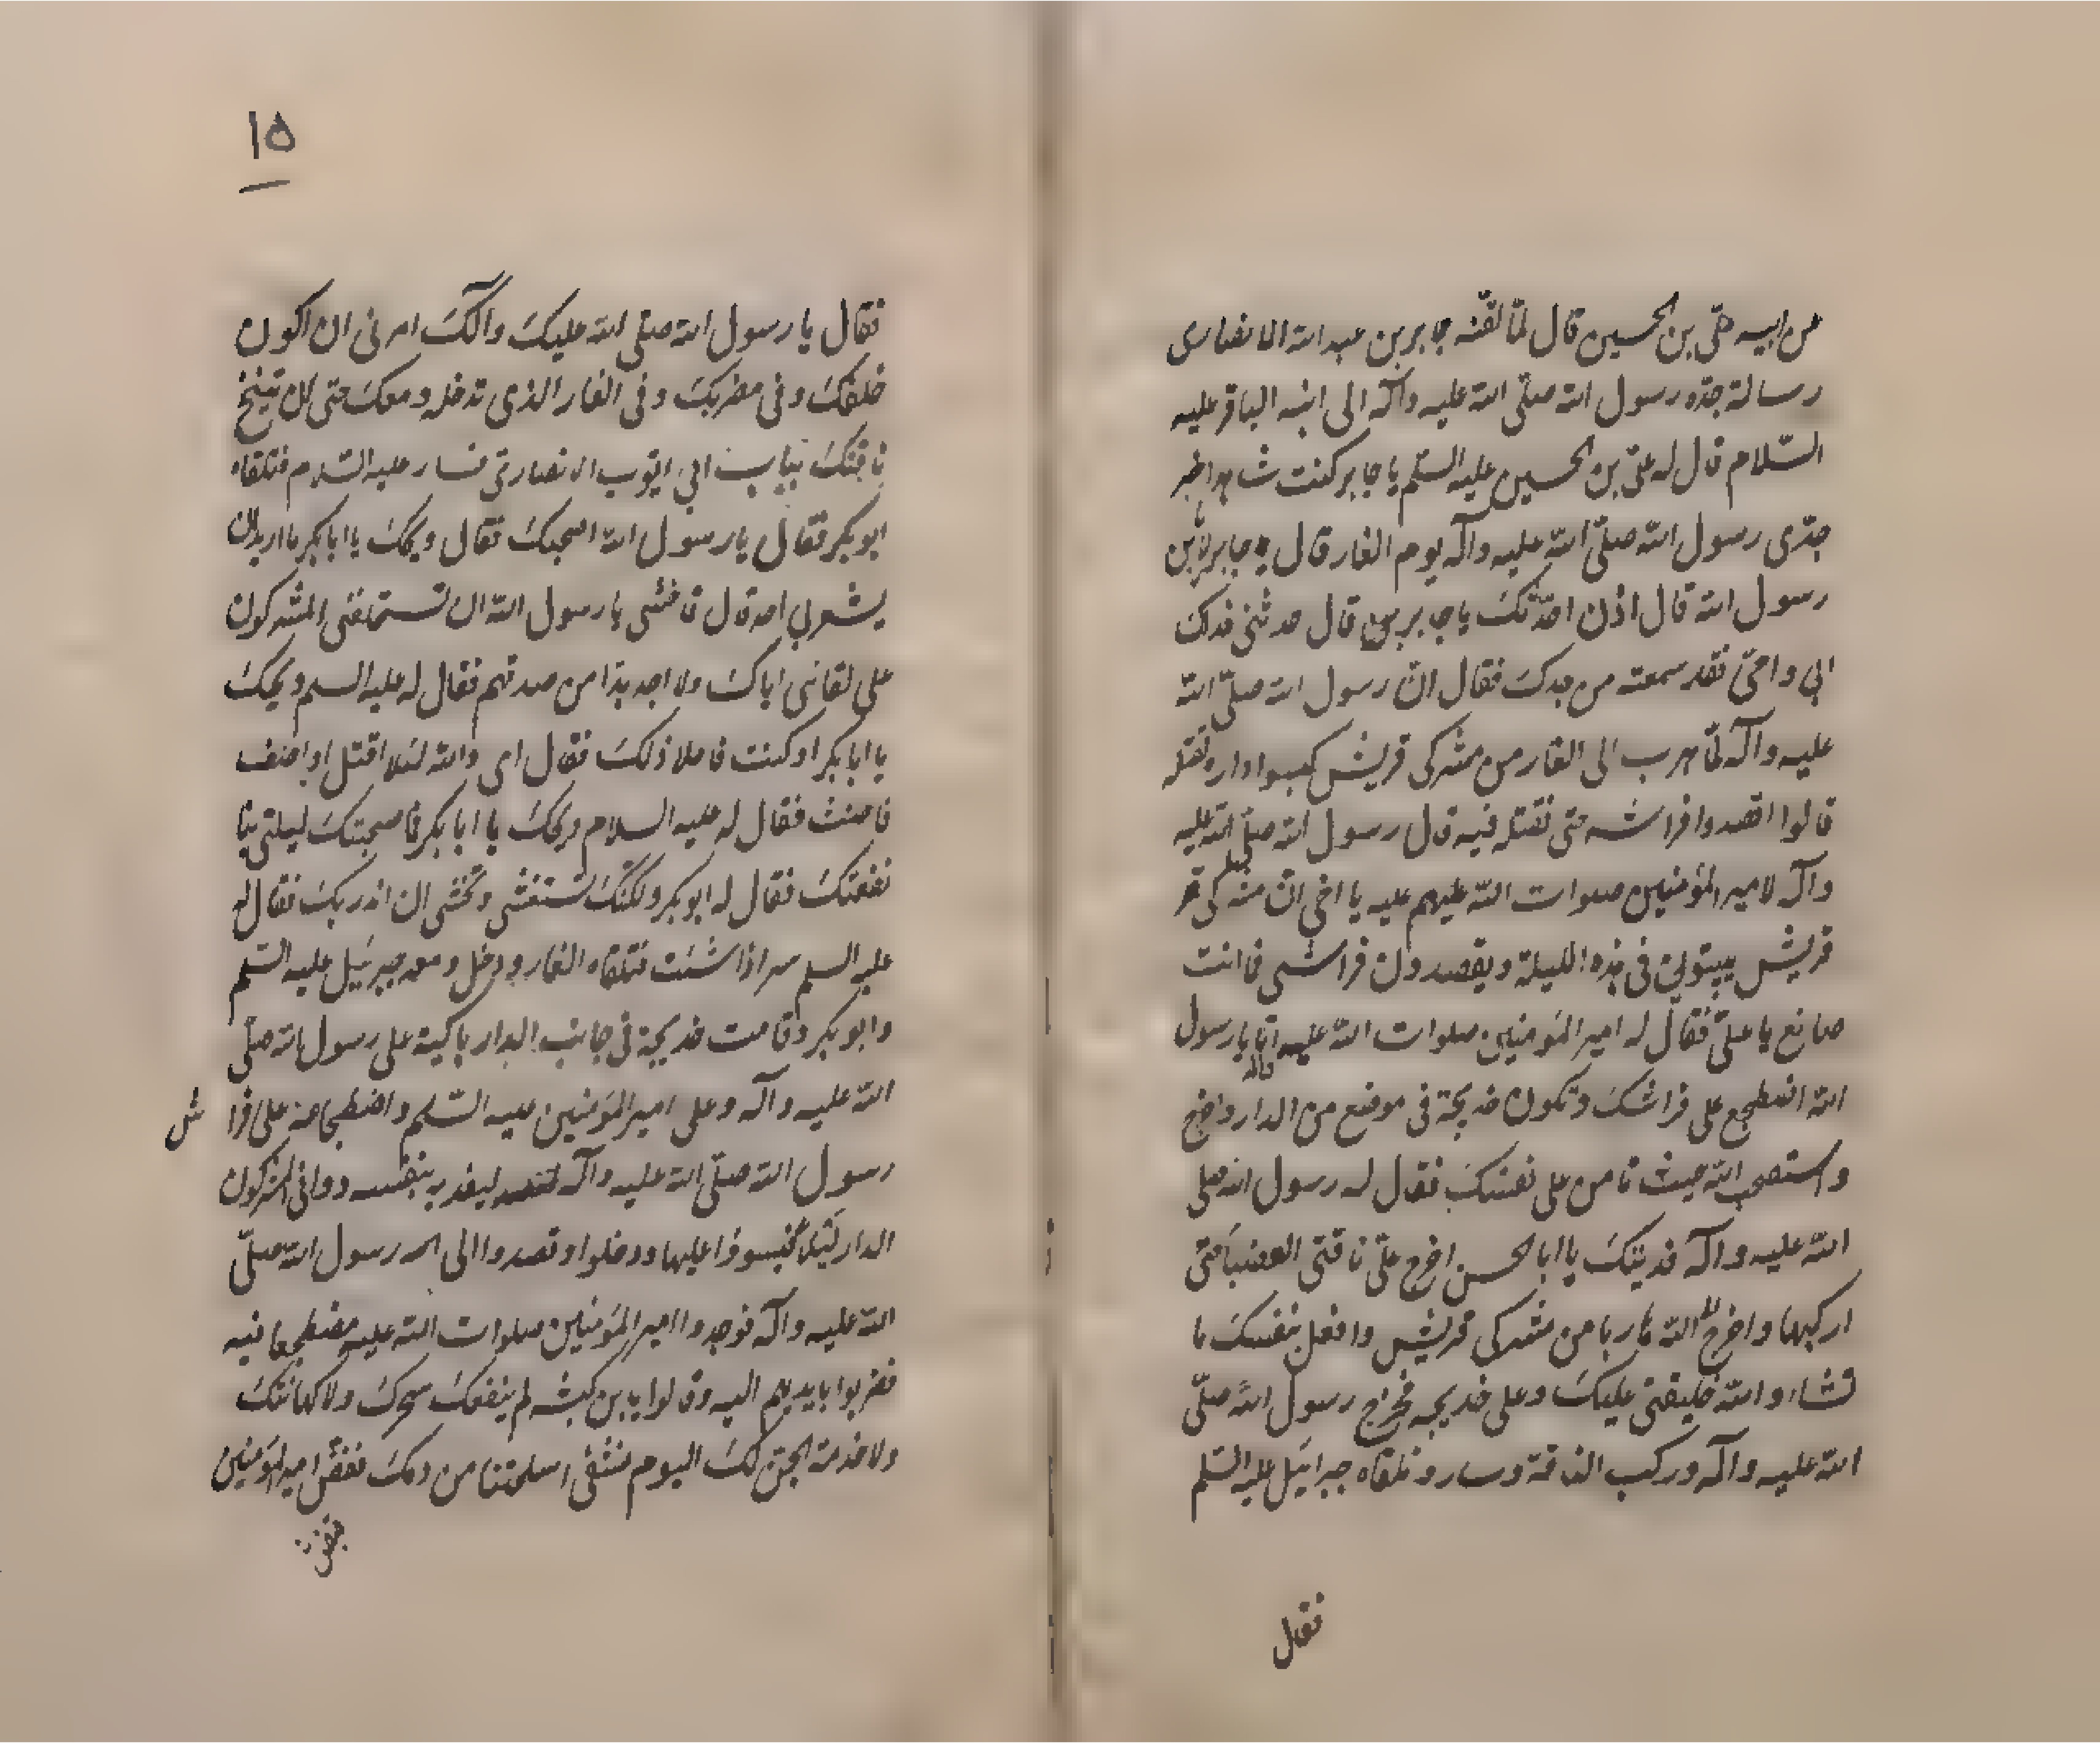 عن ابيه علّى بن الحسين قال لمّا لقّنه جابر بن عبد الله الانصارى
رسالة جدّه رسول الله صلّى الله عليه وآله الى ابنه الباقر عليه
السّلام قال له علىّ بن الحسين عليه السّلم يا جابر كنت شاهدا خبر
جدّى رسول الله صلّى الله عليه وآله يوم الغار قال جابر لا يابن
رسول الله قال اذن احدّثك يا جابر قال حدثنى فداك
ابى وامّى فقد سمعته من جدك فقال انّ رسول الله صلّى الله
عليه وآله لمّا هرب الى الغار من مشركى قريش كبسوا داره لقتله
قالوا اقصدوا فراشه حتى نقتله فيه قال رسول الله صلّى الله عليه
وآله لامير المؤمنين صلوات الله عليهم عليه يا اخى انّ مشركى
قريش يبيتونى فى هذه الليلة ويقصدون فراشى فما انت
صانع يا علىّ فقال له امير المؤمنين صلوات الله عليه انا يا رسول
الله اضطجع على فراشك وتكون خديجة فى موضع من الدار واخرج
واستصحب الله حيث تأمن على نفسك فقال له رسول الله صلى
الله عليه وآله فديتك يا ابا الحسن اخرج علىّ ناقتى العضباء حتى
اركبها واخرج الى الله هاربا من مشركى قريش وافعل بنفسك ما
تشاء والله خليفتى عليك وعلى خديجه فخرج رسول الله صلّى
الله عليه وآله وركب الناقة وسار وتلقاه جبرائيل عليه السّلم
فقال
١٥
فقال يا رسول الله صلّى الله عليك وآلك امرنى ان اكون
خلفك وفى مضربك وفى الغار الذى تدخله ومعك حتى ان تنيخ
ناقتك بباب ابى ايّوب الانصارىّ فسار عليه السّلام فتلقاه
ابو بكر فقال يا رسول الله اصحبك فقال ويحك يا ابا بكر ما اريد ان
يشعر بى احد قال فاخشى يا رسول الله ان تستحلفنى المشركون
على لقائى اياك ولا اجد بدّا من صدقهم فقال له عليه السلم ويحك
يا ابا بكر او كنت فاعلا ذلك فقال اى والله لئلا اقتل او احنف
فاحنث فقال له عليه السلام ويحك يا ابا بكر فما صحبتك ليلتى بنا
نفعتك فقال له ابو بكر ولكنّك تستغشى وتخشى ان انذر بك فقال له
عليه السلم سر اذا شئت فتلقاه الغار ودخل ومعه جبرئيل عليه السّلم
وابو بكر وقامت خديجة فى جانب الدار باكية على رسول الله صلّى
الله عليه وآله وعلى امير المؤمنين عليه السّلم واضطجاعه على فراش
رسول الله صلّى الله عليه وآله ليفديه بنفسه ووافى المشركون
الدار ليلا فتسوروا عليها ودخلوا وقصدوا الى رسول الله صلّى
الله عليه وآله فوجدوا امير المؤمنين صلوات الله عليه مضطجعا فيه
فضربوا بايديهم اليه وقالوا يابن كبشه لم ينفعك سحرك ولا كهانتك
ولا خدمة الجنّ لك اليوم نسقى اسلحتنا من دمك فنفض امير المؤمنين